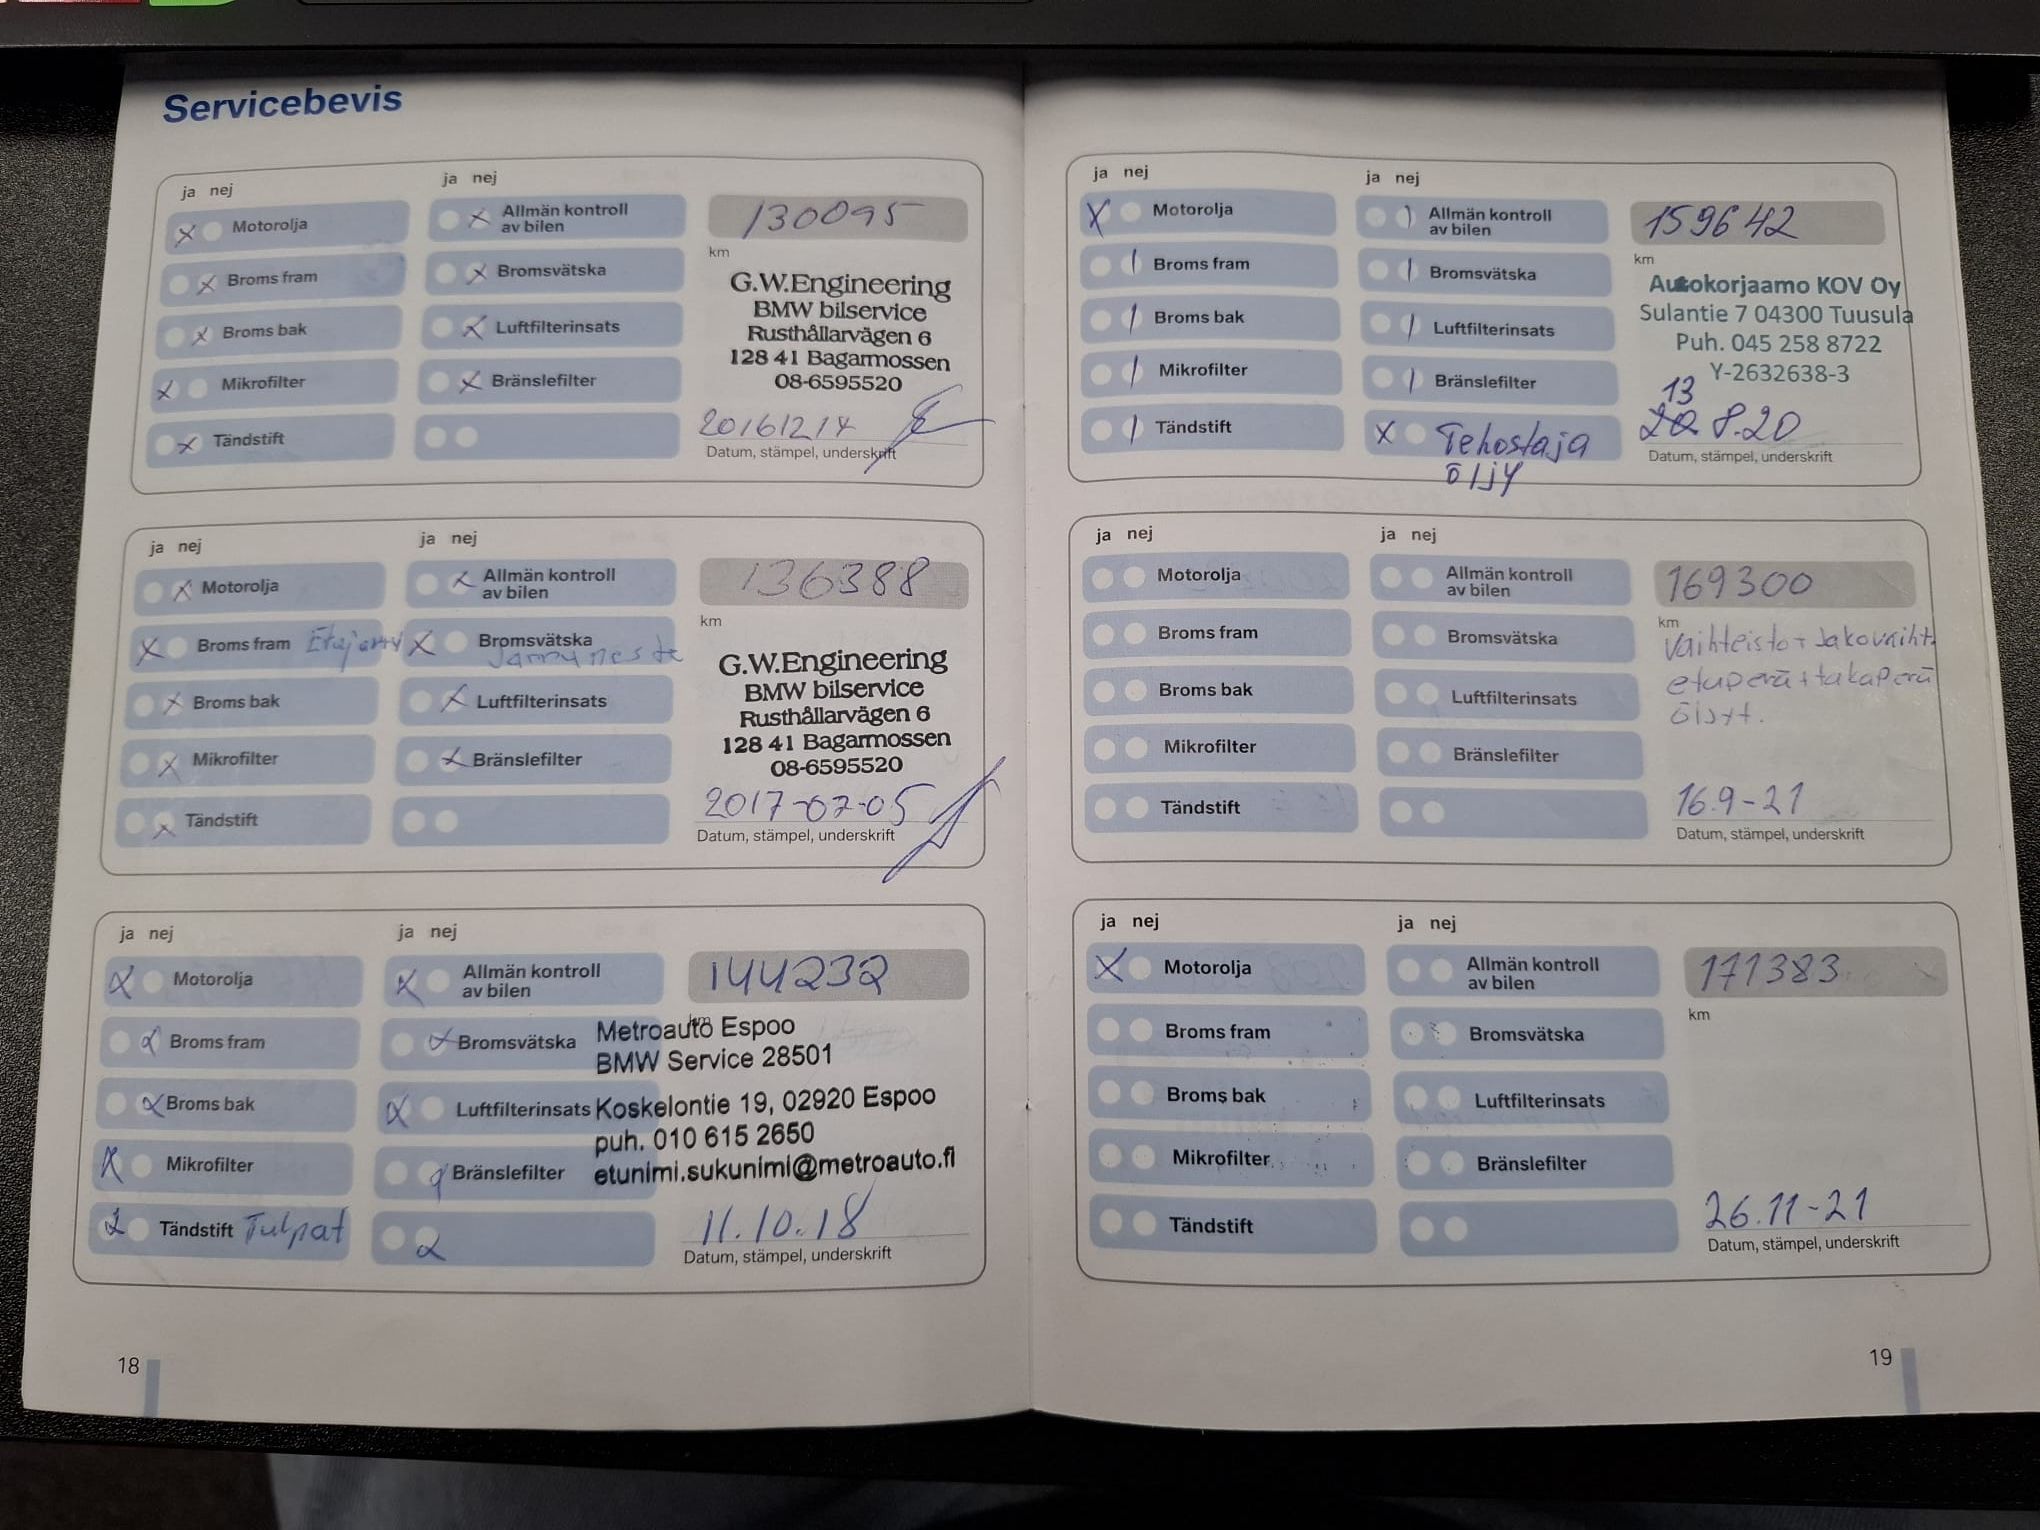 Servicebevis
ja nej
ja nej
X Motorolja
X Allmän kontroll
av bilen
130095
km
X Broms fram
X Bromsvätska
X Broms bak
X Luftfilterinsats
X Mikrofilter
X Bränslefilter
X Tändstift
G.W.Engineering
BMW bilservice
Rusthållarvägen 6
128 41 Bagarmossen
08-6595520
20161214
Datum, stämpel, underskrift
ja nej
ja nej
X Motorolja
X Allmän kontroll
av bilen
136388
km
X Broms fram Etujarru
X Bromsvätska
Jarruneste
X Broms bak
X Luftfilterinsats
X Mikrofilter
X Bränslefilter
X Tändstift
G.W.Engineering
BMW bilservice
Rusthållarvägen 6
128 41 Bagarmossen
08-6595520
2017-07-05
Datum, stämpel, underskrift
ja nej
ja nej
X Motorolja
X Allmän kontroll
av bilen
144232
km
X Broms fram
X Bromsvätska
X Broms bak
X Luftfilterinsats
X Mikrofilter
X Bränslefilter
X Tändstift Tulpat
X
Metroauto Espoo
BMW Service 28501
Koskelontie 19, 02920 Espoo
puh. 010 615 2650
etunimi.sukunimi@metroauto.fi
11.10.18
Datum, stämpel, underskrift
18
ja nej
ja nej
X Motorolja
| Allmän kontroll
av bilen
159642
km
| Broms fram
| Bromsvätska
| Broms bak
| Luftfilterinsats
| Mikrofilter
| Bränslefilter
| Tändstift
X Tehostaja
öljy
Autokorjaamo KOV Oy
Sulantie 7 04300 Tuusula
Puh. 045 258 8722
Y-2632638-3
13
8.20
Datum, stämpel, underskrift
ja nej
ja nej
Motorolja
Allmän kontroll
av bilen
169300
km
Broms fram
Bromsvätska
Broms bak
Luftfilterinsats
Mikrofilter
Bränslefilter
Tändstift
Vaihteisto + Jakovaiht.
etuperä + takaperä
öljyt.
16.9-21
Datum, stämpel, underskrift
ja nej
ja nej
X Motorolja
Allmän kontroll
av bilen
171383
km
Broms fram
Bromsvätska
Broms bak
Luftfilterinsats
Mikrofilter
Bränslefilter
Tändstift
26.11-21
Datum, stämpel, underskrift
19